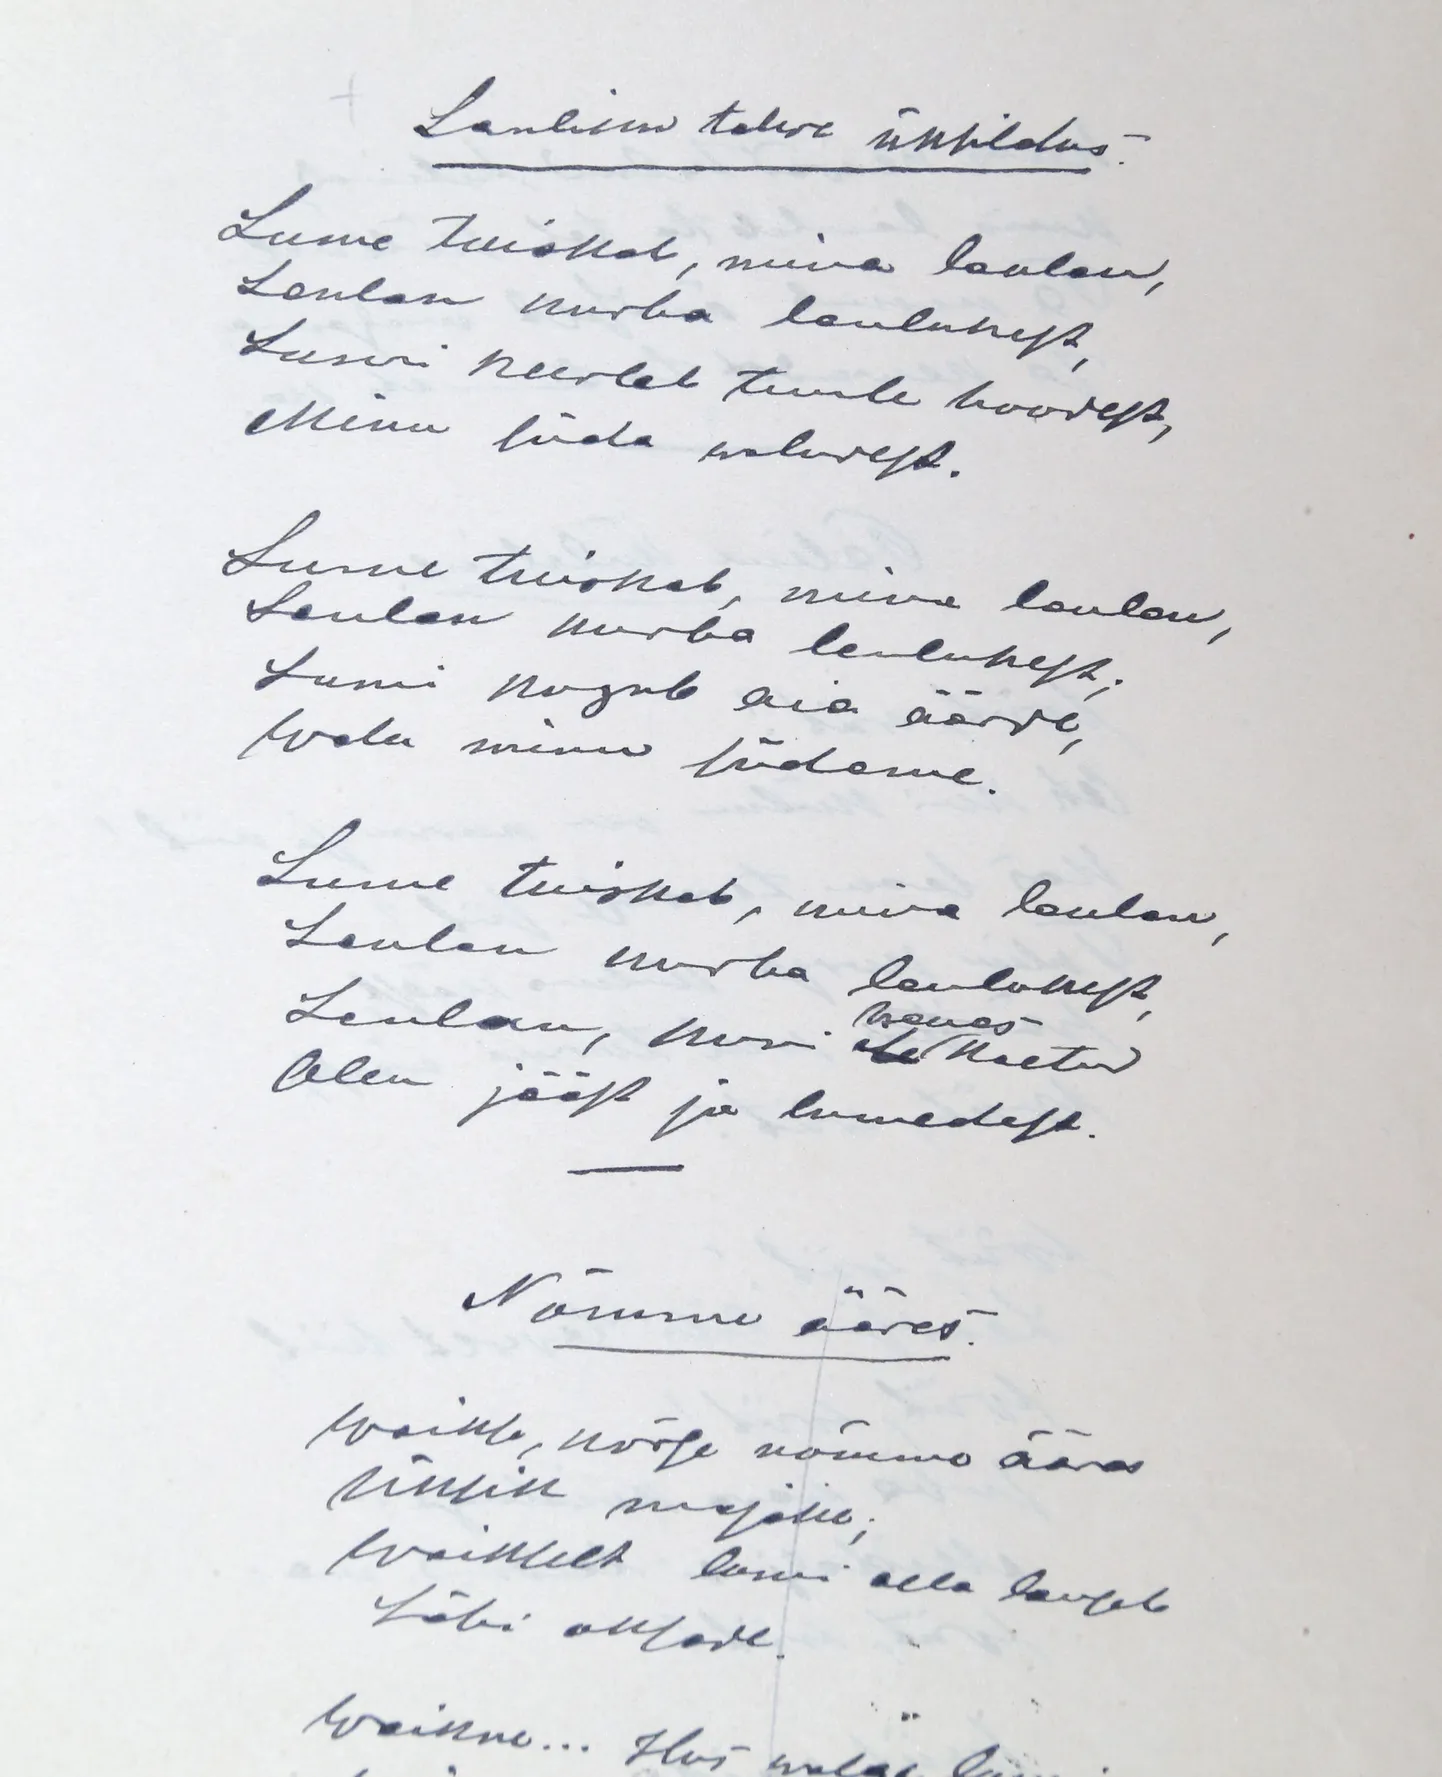 Laulikun talve üksildus.
Lume tuiskab, mina laulan,
Laulan kurba laulukest,
Lumi keerleb tuule hoovest,
Minu süda valuvest.
Lume tuiskab, mina laulan,
Laulan kurba laulukest;
Lumi kogub aia äärde,
Walu minu südame.
Lume tuiskab, mina laulan,
Laulan kurba laulukest,
Laulan, kuni
kaetud
Olen jääst ja lumedest.
Nõmme ääres.
Waikse, kõrge nõmme ääres
Üksik majake;
Waikselt lumi alla langeb
Läbi oksade.
Waikne... Hus valge lumi